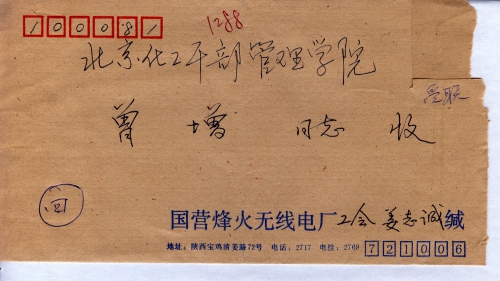 100081
1288
北京化工干部管理学院
曾增 同志 收
回
国营烽火无线电厂 工会 姜志诚 缄
地址：陕西宝鸡清姜路72号 电话：2717 电挂：2760 721006